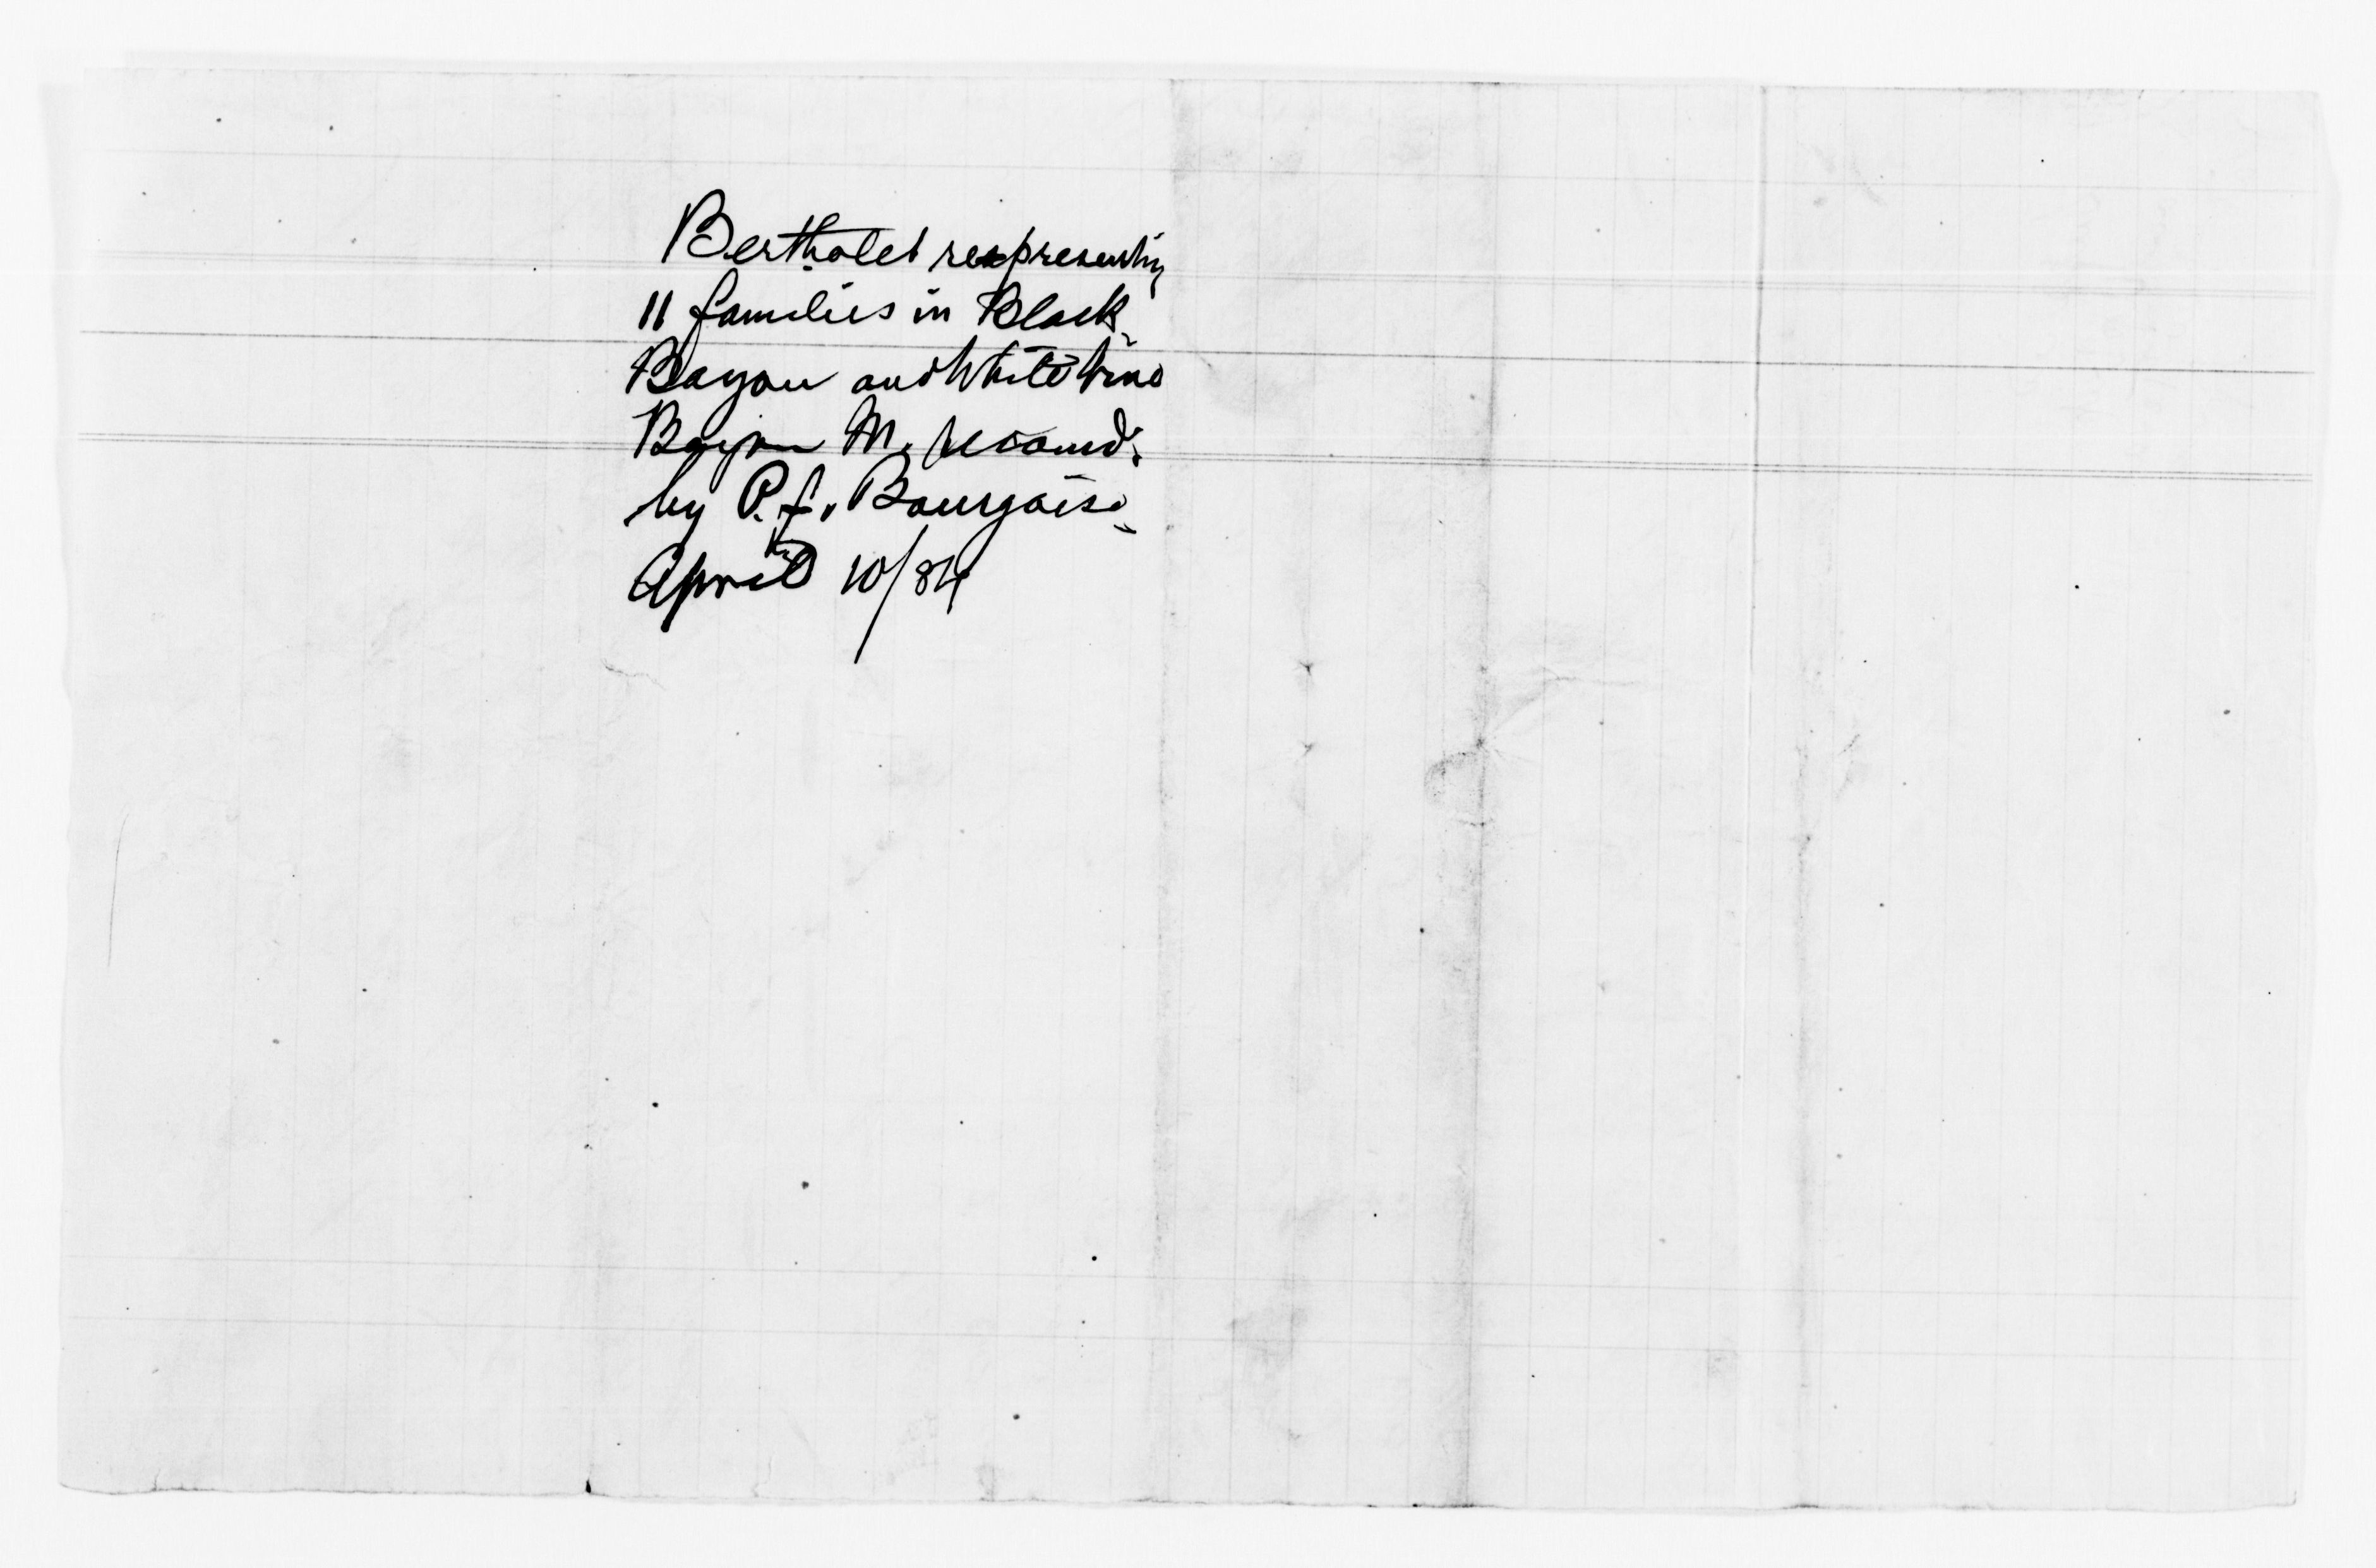 Bertholet representing
11 families in Black
Bayou and White
Bayou M.
by P. J. Bourgois.
April 10/84